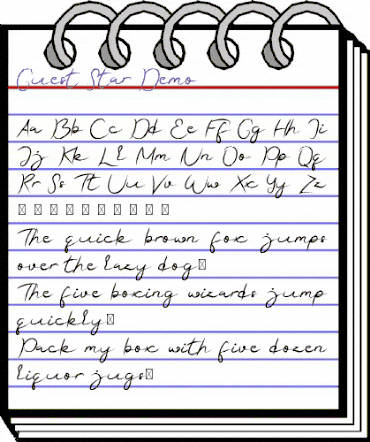 Guest Star Demo
Aa Bb Cc Dd Ee Ff Gg Hh Ii
Jj Kk Ll Mm Nn Oo Pp Qq
Rr Ss Tt Uu Vv Ww Xx Yy Zz
The quick brown fox jumps
over the lazy dog
The five boxing wizards jump
quickly
Pack my box with five dozen
liquor jugs